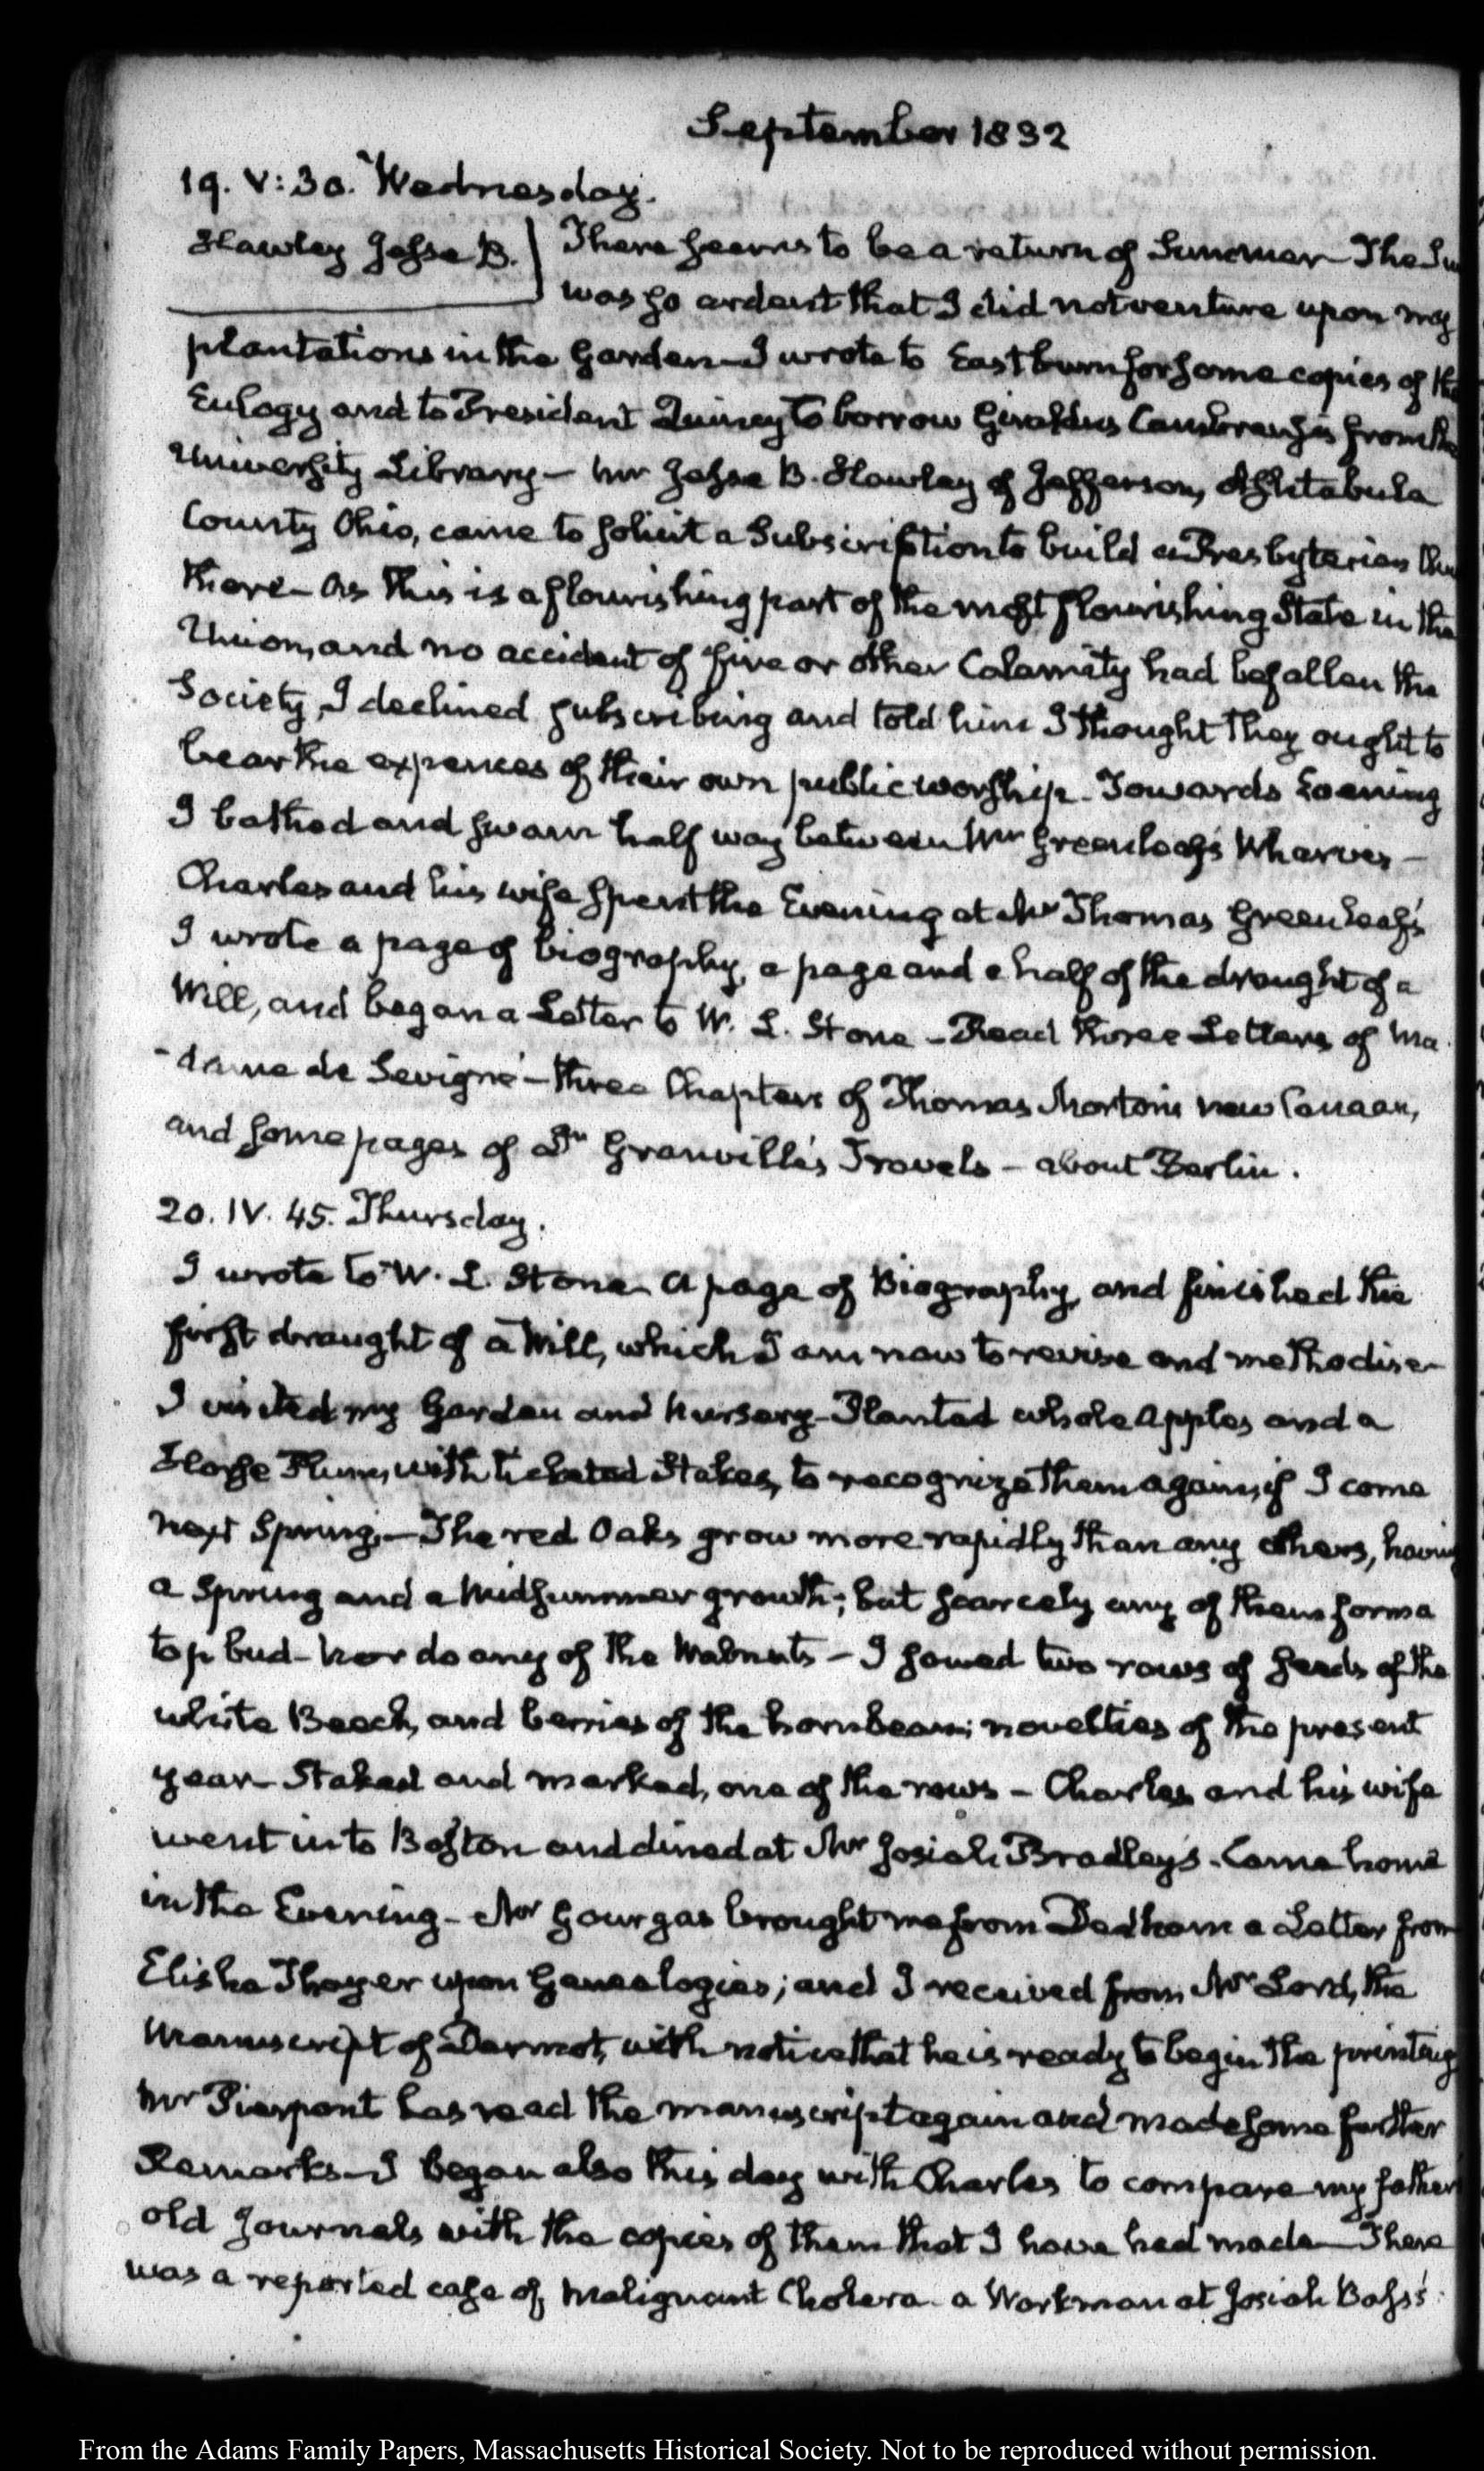 September 1832
19. V:30. Wednesday.
Hawley Jesse B.
There seems to be a return of Summer— The Su
was so ardent that I did not venture upon my
plantations in the Garden— I wrote to Eastburn for some copies of the
Eulogy and to President Quincy to borrow Giraldus Cambrensis from the
University Library— Mr Jesse B. Hawley of Jefferson, Ashtabula
County Ohio, came to solicit a Subscription to build a Presbyterian Chu
there— As this is a flourishing part of the most flourishing State in the
Union, and no accident of fire or other Calamity had befallen the
Society, I declined subscribing and told him I thought they ought to
bear the expences of their own public worship— Towards Evening
I bathed and swam half way between Mr Greenleaf's Wharves—
Charles and his wife spent the Evening at Mr Thomas Greenleaf's
I wrote a page of biography, a page and a half of the draught of a
Will, and began a Letter to W. L. Stone— Read three Letters of Ma
-dame de Sevigné— three Chapters of Thomas Morton's new Canaan,
and some pages of Dr Granville's Travels— about Berlin.
20. IV. 45. Thursday.
I wrote to W. L. Stone— A page of Biography, and finished the
first draught of a Will, which I am now to revise and methodise—
I visited my Garden and Nursery— Planted whole Apples and a
Horse Plum, with ticketed Stakes, to recognize them again, if I come
next Spring.— The red Oaks grow more rapidly than any others, having
a Spring and a Midsummer growth; but scarcely any of them form a
top bud— Nor do any of the Walnuts— I sowed two rows of seeds of the
white Beech, and berries of the hornbeam; novelties of the present
year— Staked and marked, one of the rows— Charles and his wife
went into Boston and dined at Mr Josiah Bradley's. Came home
in the Evening— Mr Gourgas brought me from Dedham a Letter from
Elisha Thayer upon Genealogies; and I received from Mr Lord, the
Manuscript of Dermot, with notice that he is ready to begin the printing
Mr Pierpont has read the manuscript again and made some further
Remarks— I began also this day with Charles to compare my father's
old Journals with the copies of them that I have had made— There
was a reported case of Malignant Cholera— a Workman at Josiah Bass's.
From the Adams Family Papers, Massachusetts Historical Society. Not to be reproduced without permission.